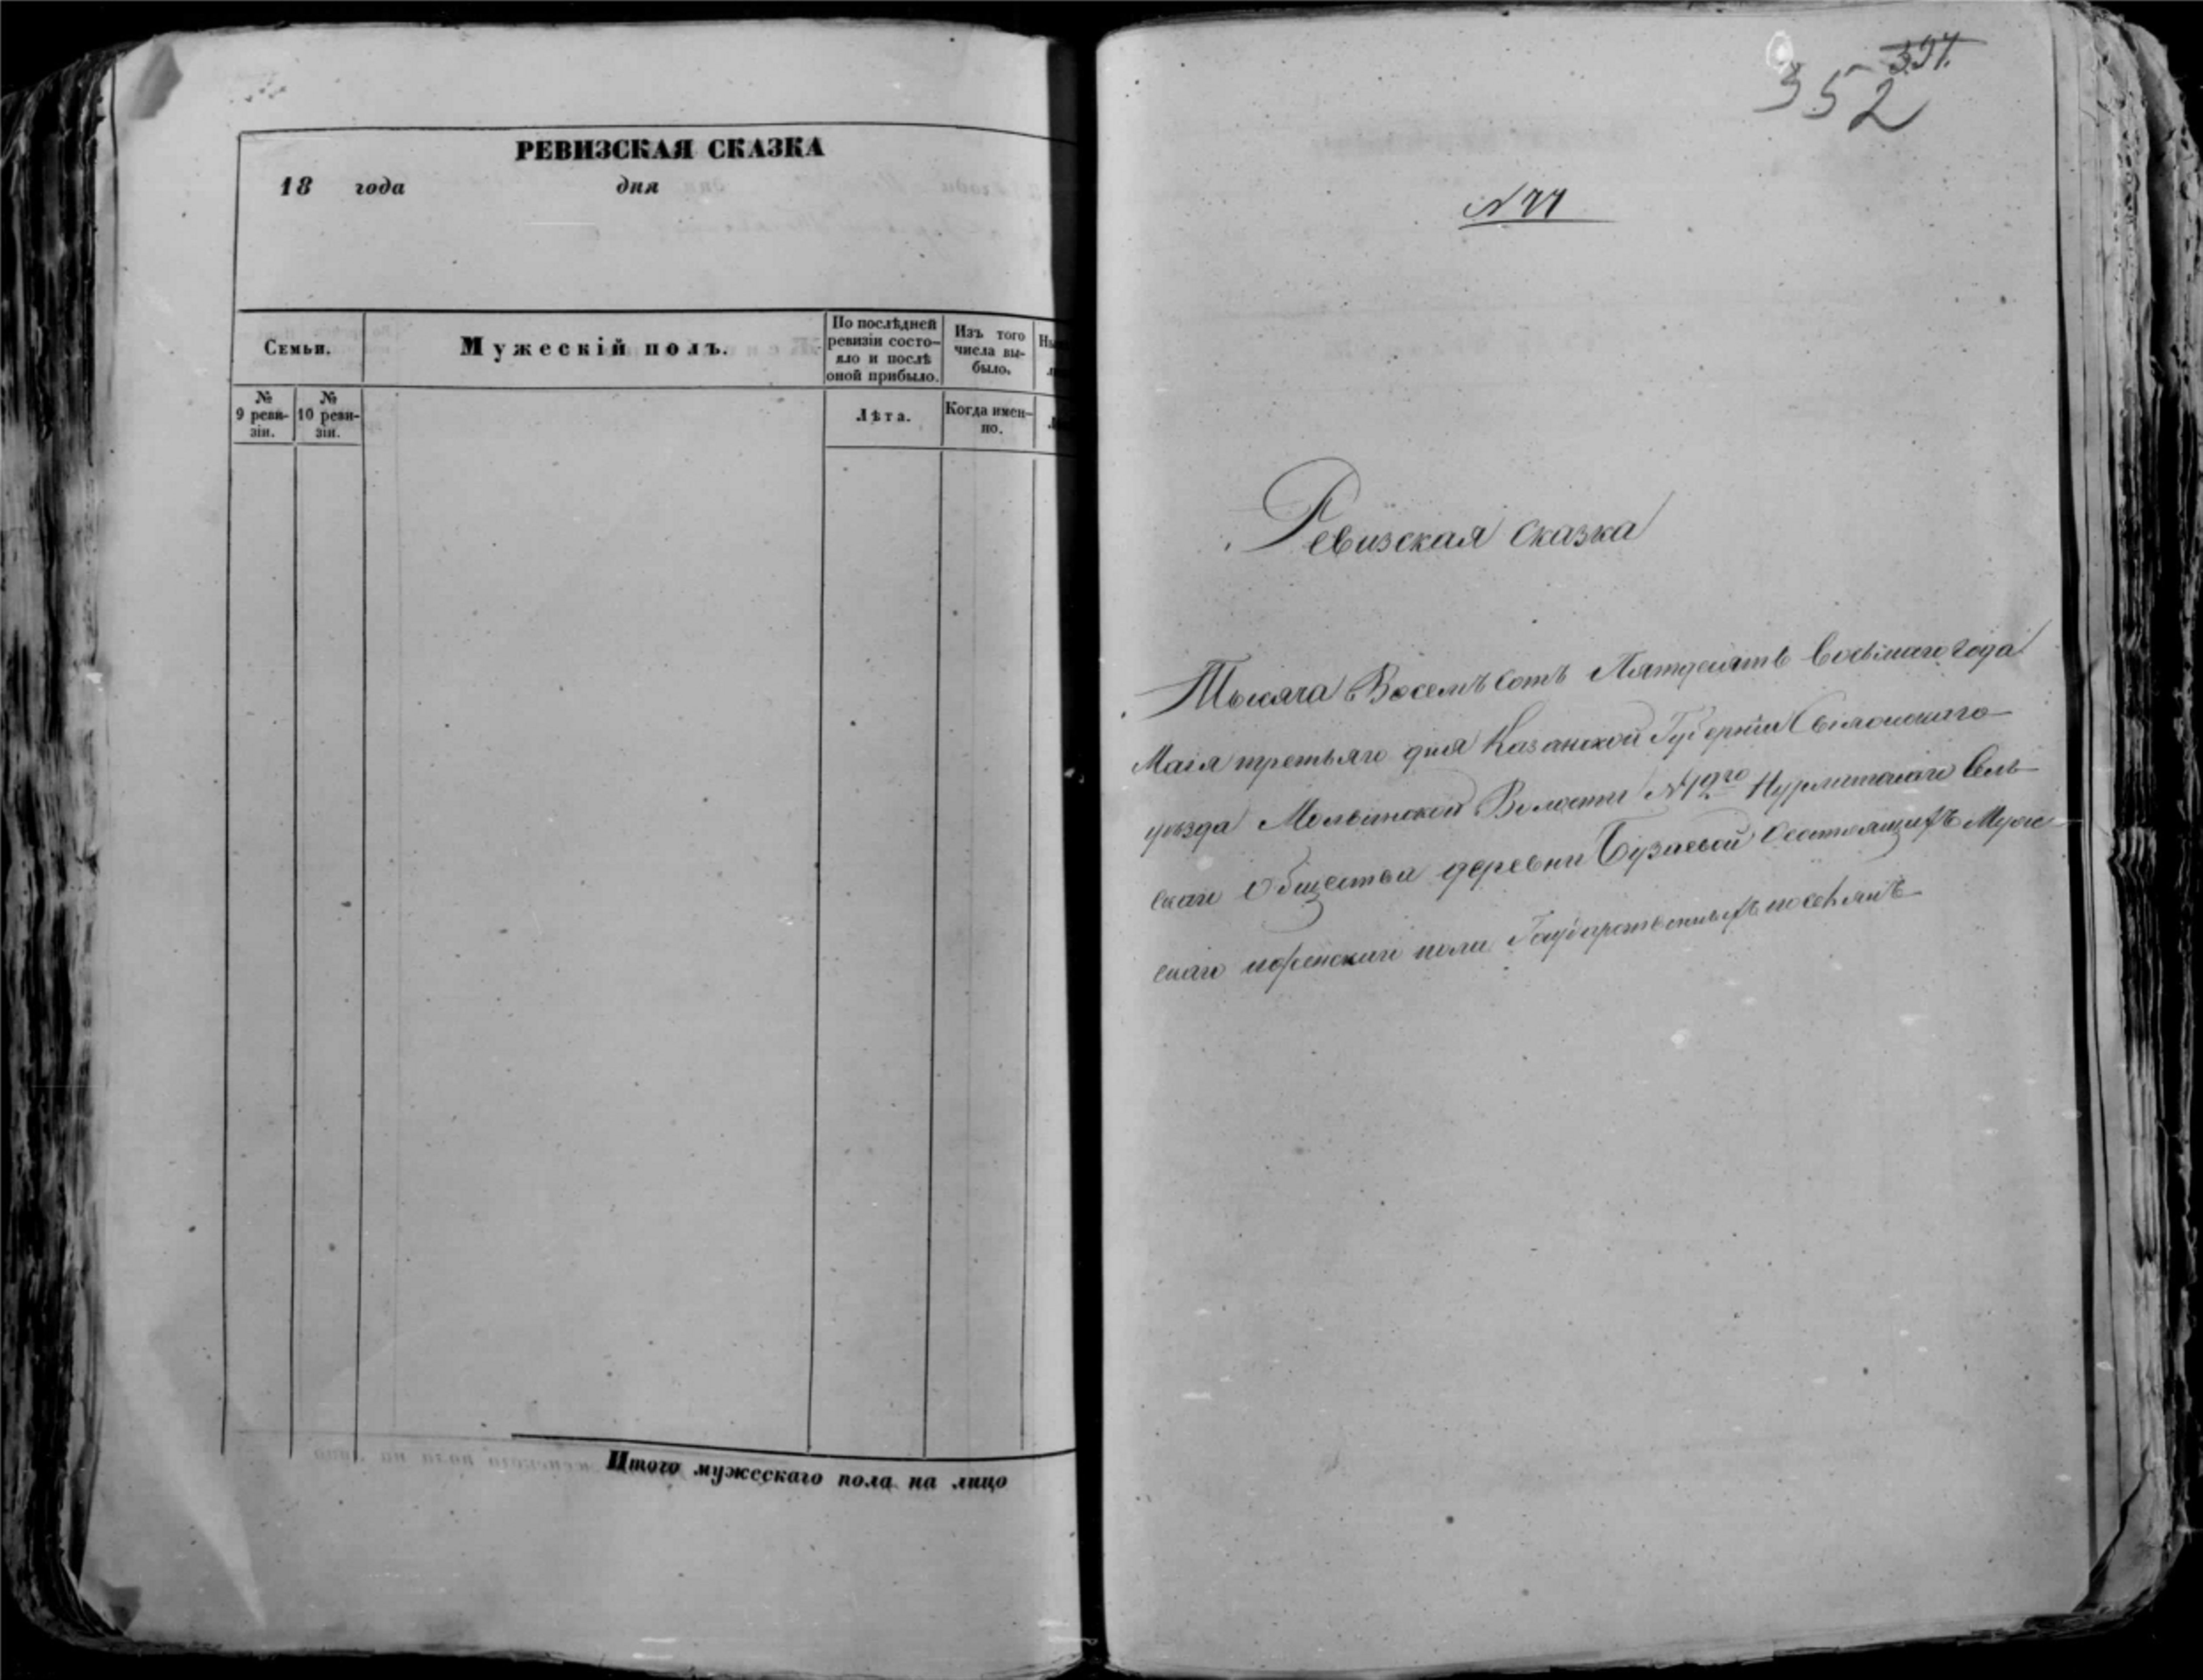 РЕВИЗСКАЯ СКАЗКА
18 года дня
Семьи.
Мужескій полъ.
По послѣдней ревизіи состо-
яло и послѣ
оной прибыло.
Изъ того
числа вы-
было.
№
9 реви-
зіи.
№
10 реви-
зіи.
Лѣта.
Когда имен-
но.
Итого мужескаго пола на лицо
352
Ревизская сказка
Тысяча Восемъ сотъ Пятдесятъ Восьмаго года
Маія третьяго дня Казанской Губерніи Свіяжскаго
уѣзда Молвинской Волости №12го Нурлатскаго Сель
скаго Общества деревни Бузаевой Осостоящихъ Муже
скаго иженскаго пола Государственныхъ поселянъ